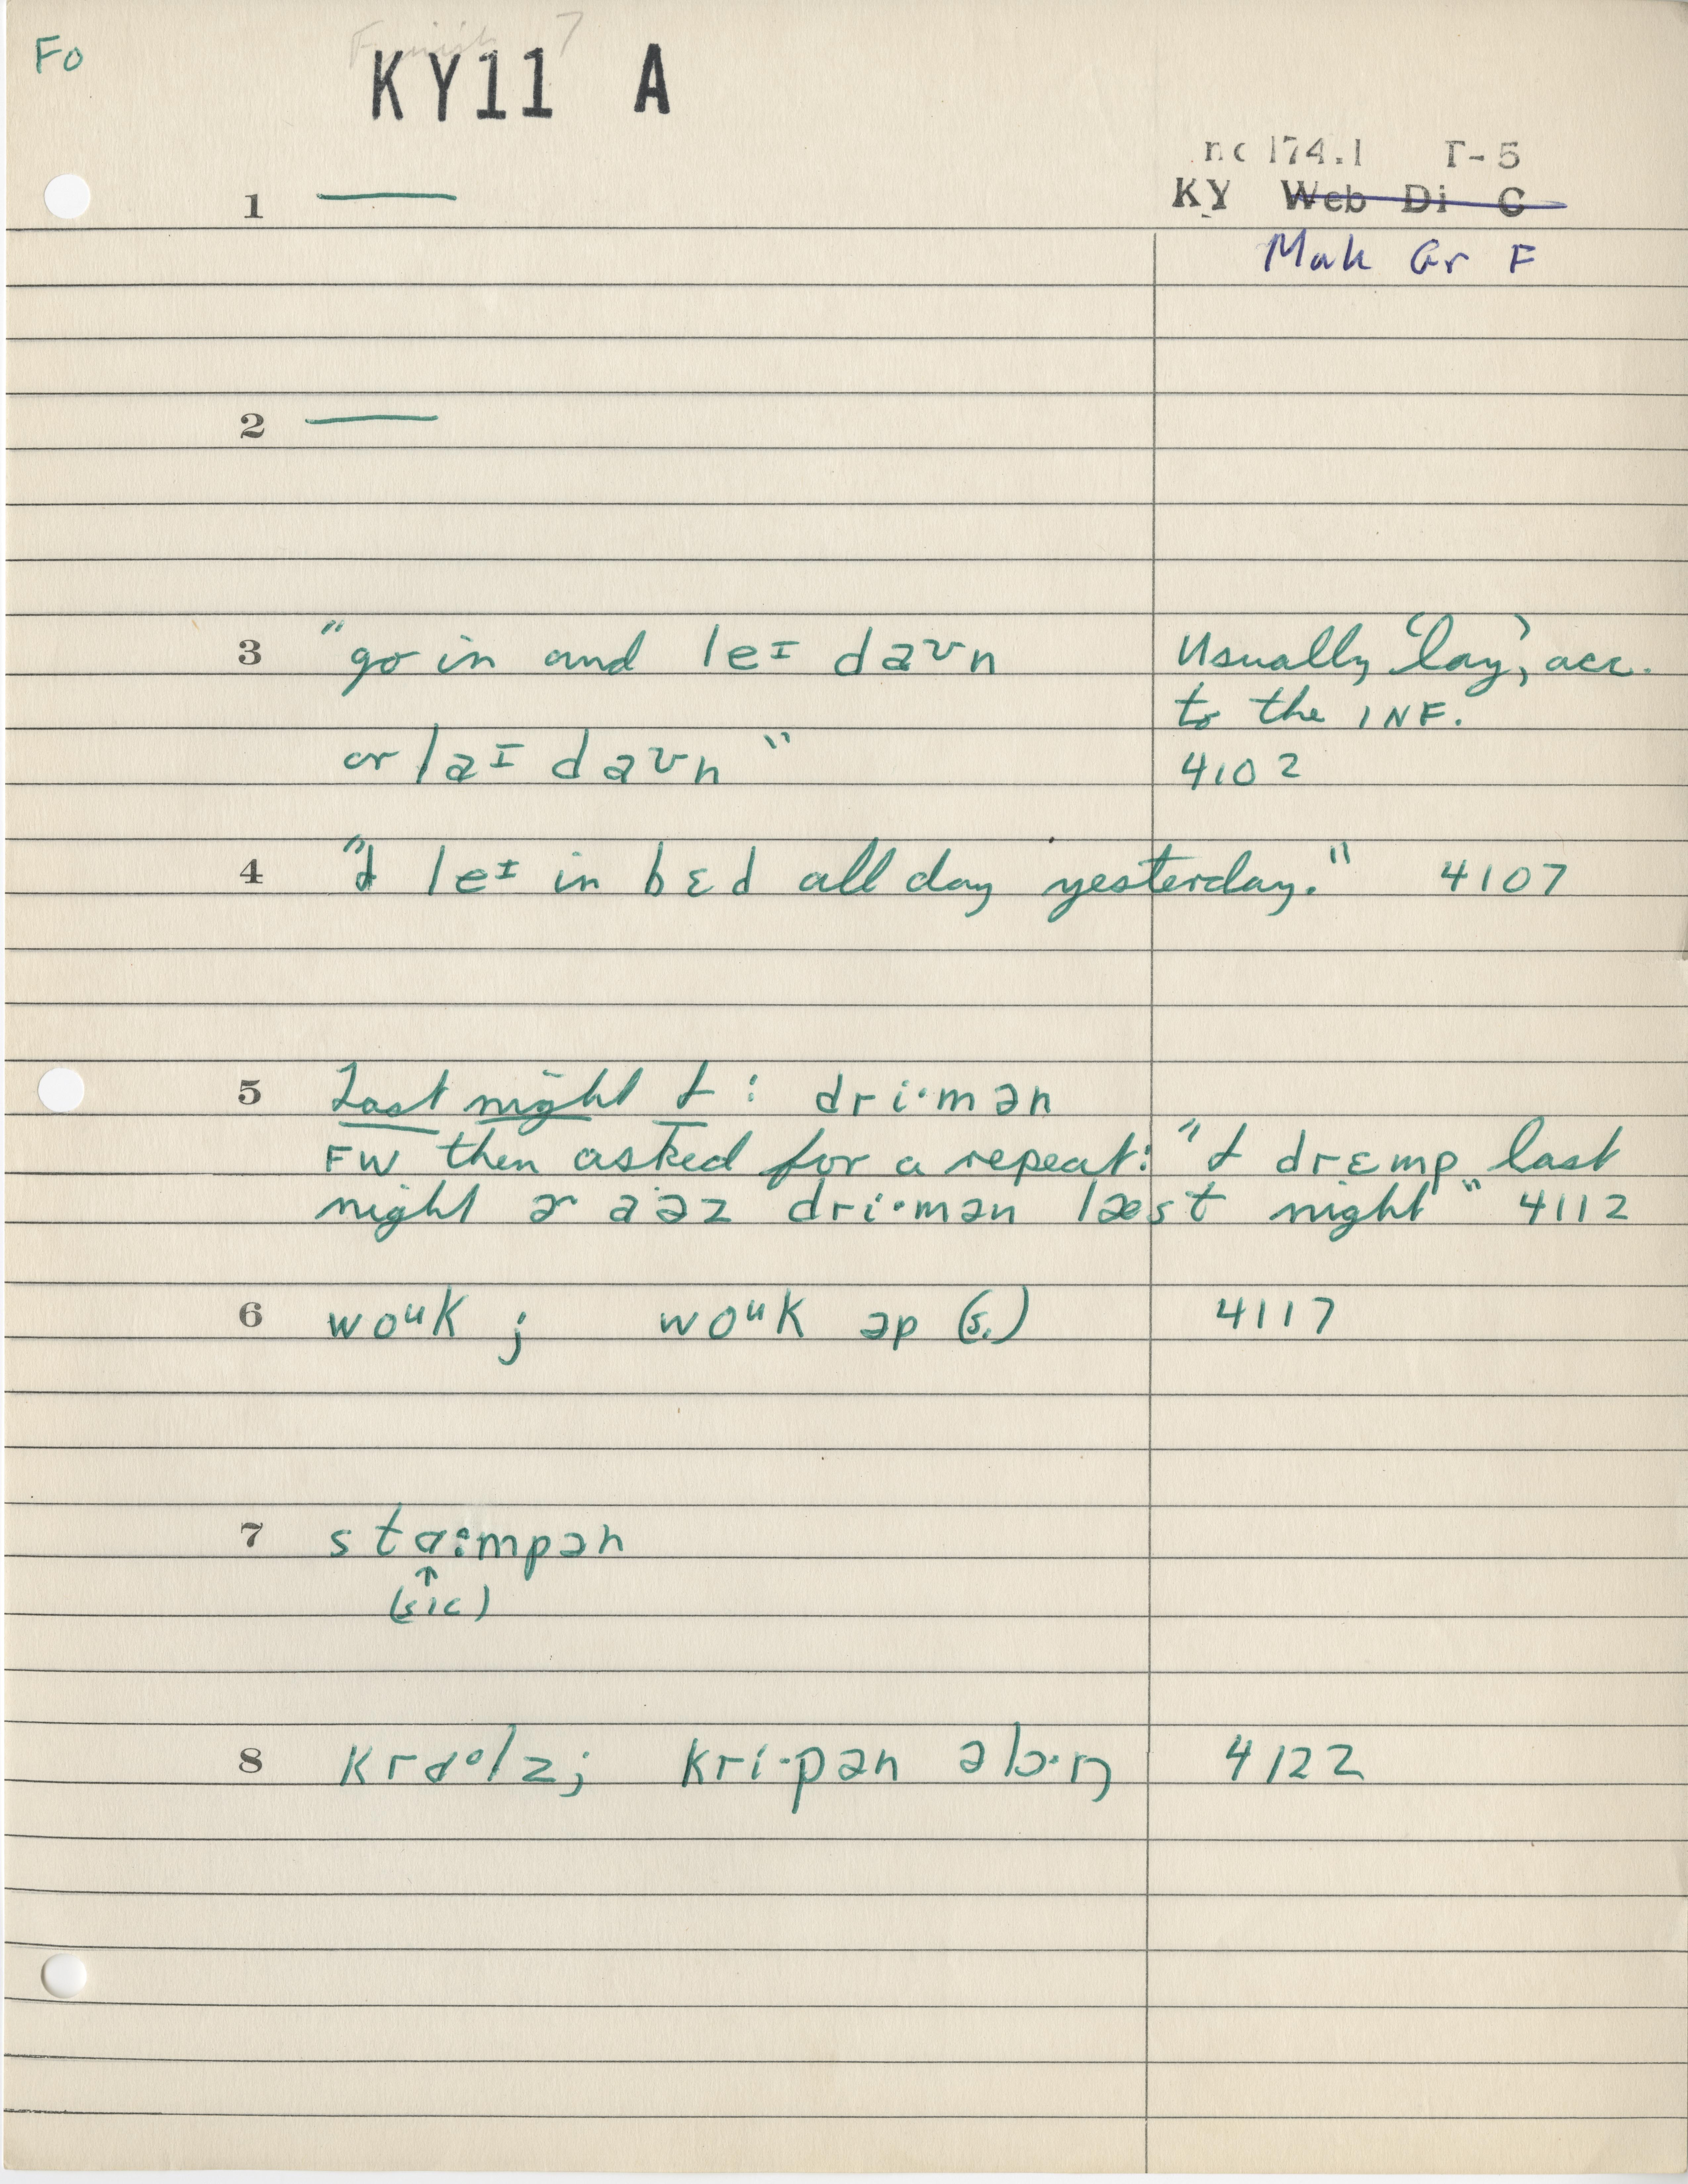 Fo
KY11 A
nc 174.1 T-5
KY Web Di C
Mak Gr F
1 —
2 —
3 "go in and leɪ daʊn Usually 'lay', acc.
to the INF.
or laɪ daʊn" 4102
4 "I leɪ in bɛd all day yesterday." 4107
5 Last night I : dri·mən
FW then asked for a repeat: "I drɛmp last
night ɚ aəz dri·mən læst night" 4112
6 woᵘk ; woᵘk əp (s.) 4117
7 stɑ:mpən
↑
(sic)
8 krɑᵒlz; kri·pən əlɔ·ŋ 4122